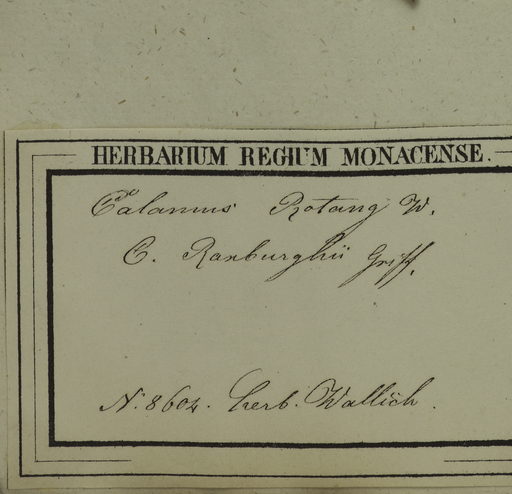 HERBARIUM REGIUM MONACENSE.
Calamus Rotang W.
C. Roxburghii Griff.
N. 8604. herb. Wallich.